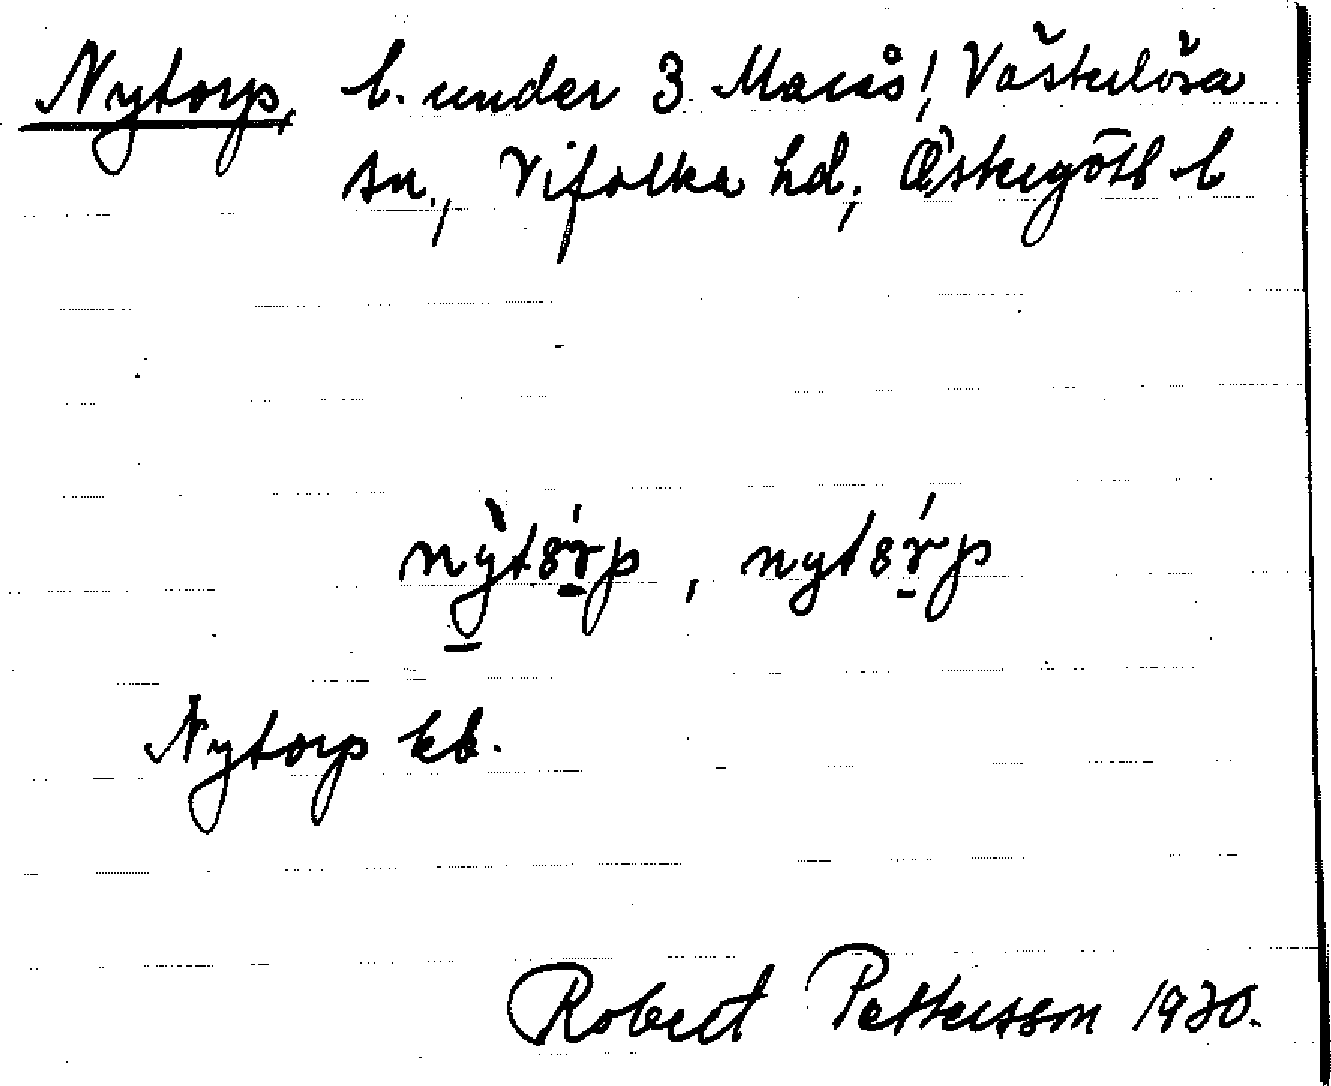 Nytorp, l. under 3 Macus, Västerlösa
sn., Vifolka hd, Östergötl. l
nỳtórp, nytórp
Nytorp kb.
Robert Pettersson 1930.